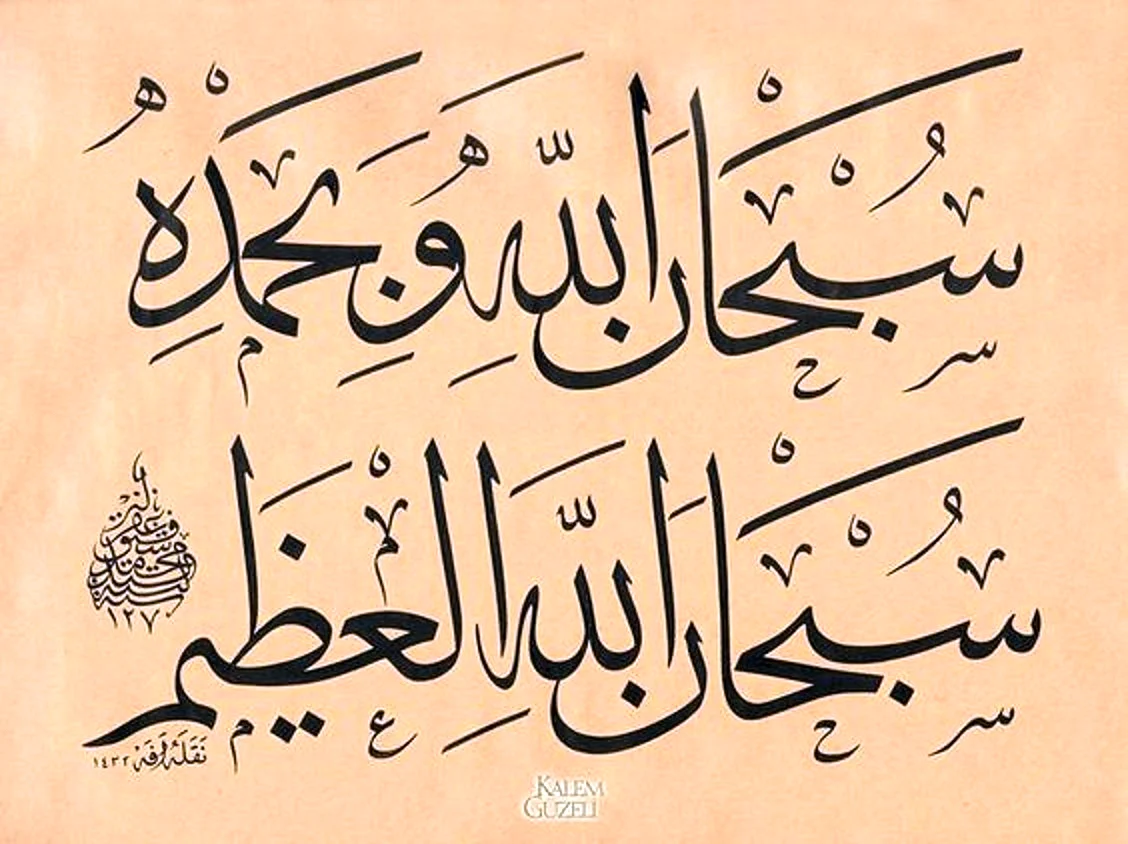 سُبْحَانَ اللّٰهِ وَبِحَمْدِهِ
سُبْحَانَ اللّٰهِ الْعَظِيمِ
١٢٧
نَقَلَهُ ١٤٣٢
KALEM
GÜZELİ